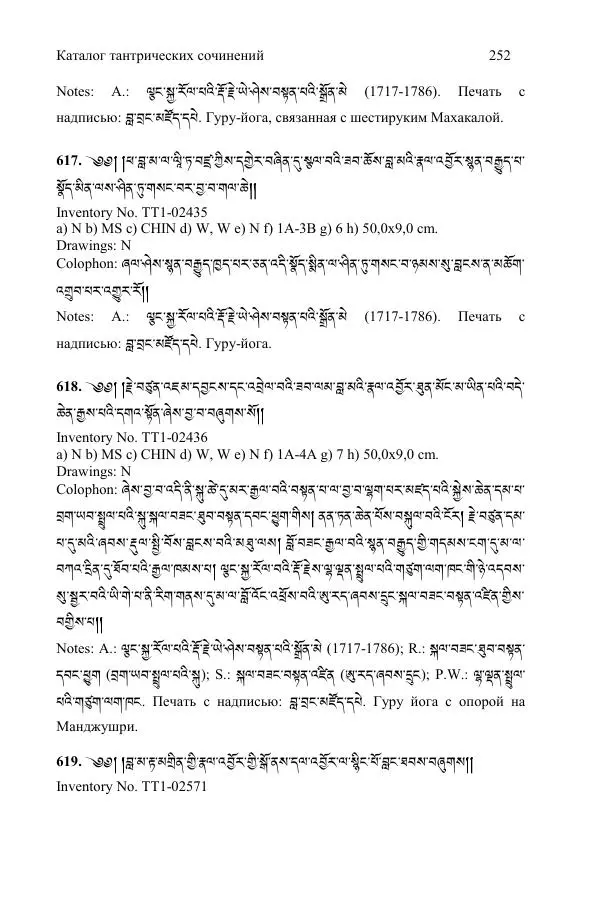 Каталог тантрических сочинений 252
Notes: A.: ལྕང་སྐྱ་རོལ་པའི་རྡོ་རྗེ་ཡེ་ཤེས་བསྟན་པའི་སྒྲོན་མེ (1717-1786). Печать с
надписью: བླ་བྲང་མཛོད་དཔེ. Гуру-йога, связанная с шестируким Махакалой.
617. ༄༅། །ཕ་བླ་མ་ལ་ལཱི་ཏ་བཛྲ་ཀྱིས་དགྱེར་བཞིན་དུ་སྩལ་བའི་ཟབ་ཆོས་བླ་མའི་རྣལ་འབྱོར་སྙན་བརྒྱུད་པ་
སྣོད་མིན་ལས་ཤིན་ཏུ་གསང་བར་བྱ་བ་གལ་ཆེ།།
Inventory No. TT1-02435
a) N b) MS c) CHIN d) W, W e) N f) 1A-3B g) 6 h) 50,0x9,0 cm.
Drawings: N
Colophon: ཞལ་ཤེས་སྙན་བརྒྱུད་ཁྱད་པར་ཅན་འདི་སྣོད་སྨིན་ལ་ཤིན་ཏུ་གསང་བ་ཉམས་སུ་བླངས་ན་མཆོག་
འགྲུབ་པར་འགྱུར་རོ།།
Notes: A.: ལྕང་སྐྱ་རོལ་པའི་རྡོ་རྗེ་ཡེ་ཤེས་བསྟན་པའི་སྒྲོན་མེ (1717-1786). Печать с
надписью: བླ་བྲང་མཛོད་དཔེ. Гуру-йога.
618. ༄༅། །རྗེ་བཙུན་འཇམ་དབྱངས་དང་འབྲེལ་བའི་ཟབ་ལམ་བླ་མའི་རྣལ་འབྱོར་ཐུན་མོང་མ་ཡིན་པའི་བདེ་
ཆེན་རྒྱས་པའི་དགའ་སྟོན་ཞེས་བྱ་བ་བཞུགས་སོ།།
Inventory No. TT1-02436
a) N b) MS c) CHIN d) W, W e) N f) 1A-4A g) 7 h) 50,0x9,0 cm.
Drawings: N
Colophon: ཞེས་བྱ་བ་འདི་ནི་སྐུ་ཚེ་དུ་མར་རྒྱལ་བའི་བསྟན་པ་ལ་བྱ་བ་ལྷག་པར་མཛད་པའི་སྐྱེས་ཆེན་དམ་པ་
བྲག་ཡབ་སྤྲུལ་པའི་སྐུ་སྐལ་བཟང་ཐུབ་བསྟན་དབང་ཕྱུག་གིས། ནན་ཏན་ཆེན་པོས་བསྐུལ་བའི་ངོར། རྗེ་བཙུན་དམ་
པ་དུ་མའི་ཞབས་རྡུལ་སྤྱི་བོས་བླངས་བའི་མཐུ་ལས། བློ་བཟང་རྒྱལ་བའི་སྙན་བརྒྱུད་ཀྱི་གདམས་ངག་དུ་མ་ལ་
བཀའ་དྲིན་དུ་ཐོབ་པའི་རྒྱལ་ཁམས་པ། ལྕང་སྐྱ་རོལ་བའི་རྡོ་རྗེས་ལྷ་ལྡན་སྤྲུལ་པའི་གཙུག་ལག་ཁང་གི་ཉེ་འདབས་
སུ་སྦྱར་བའི་ཡི་གེ་པ་ནི་རིག་གནས་དུ་མ་ལ་བློ་འོང་འཕྲོས་བའི་ཨུ་རད་ཞབས་དྲུང་སྐལ་བཟང་བསྟན་འཛིན་གྱིས་
བགྱིས་པ།།
Notes: A.: ལྕང་སྐྱ་རོལ་པའི་རྡོ་རྗེ་ཡེ་ཤེས་བསྟན་པའི་སྒྲོན་མེ (1717-1786); R.: སྐལ་བཟང་ཐུབ་བསྟན་
དབང་ཕྱུག (བྲག་ཡབ་སྤྲུལ་པའི་སྐུ); S.: སྐལ་བཟང་བསྟན་འཛིན (ཨུ་རད་ཞབས་དྲུང); P.W.: ལྷ་ལྡན་སྤྲུལ་
པའི་གཙུག་ལག་ཁང. Печать с надписью: བླ་བྲང་མཛོད་དཔེ. Гуру йога с опорой на
Манджушри.
619. ༄༅། །བླ་མ་རྟ་མགྲིན་གྱི་རྣལ་འབྱོར་གྱི་སྒོ་ནས་དལ་འབྱོར་ལ་སྙིང་པོ་བླང་ཐབས་བཞུགས།།
Inventory No. TT1-02571